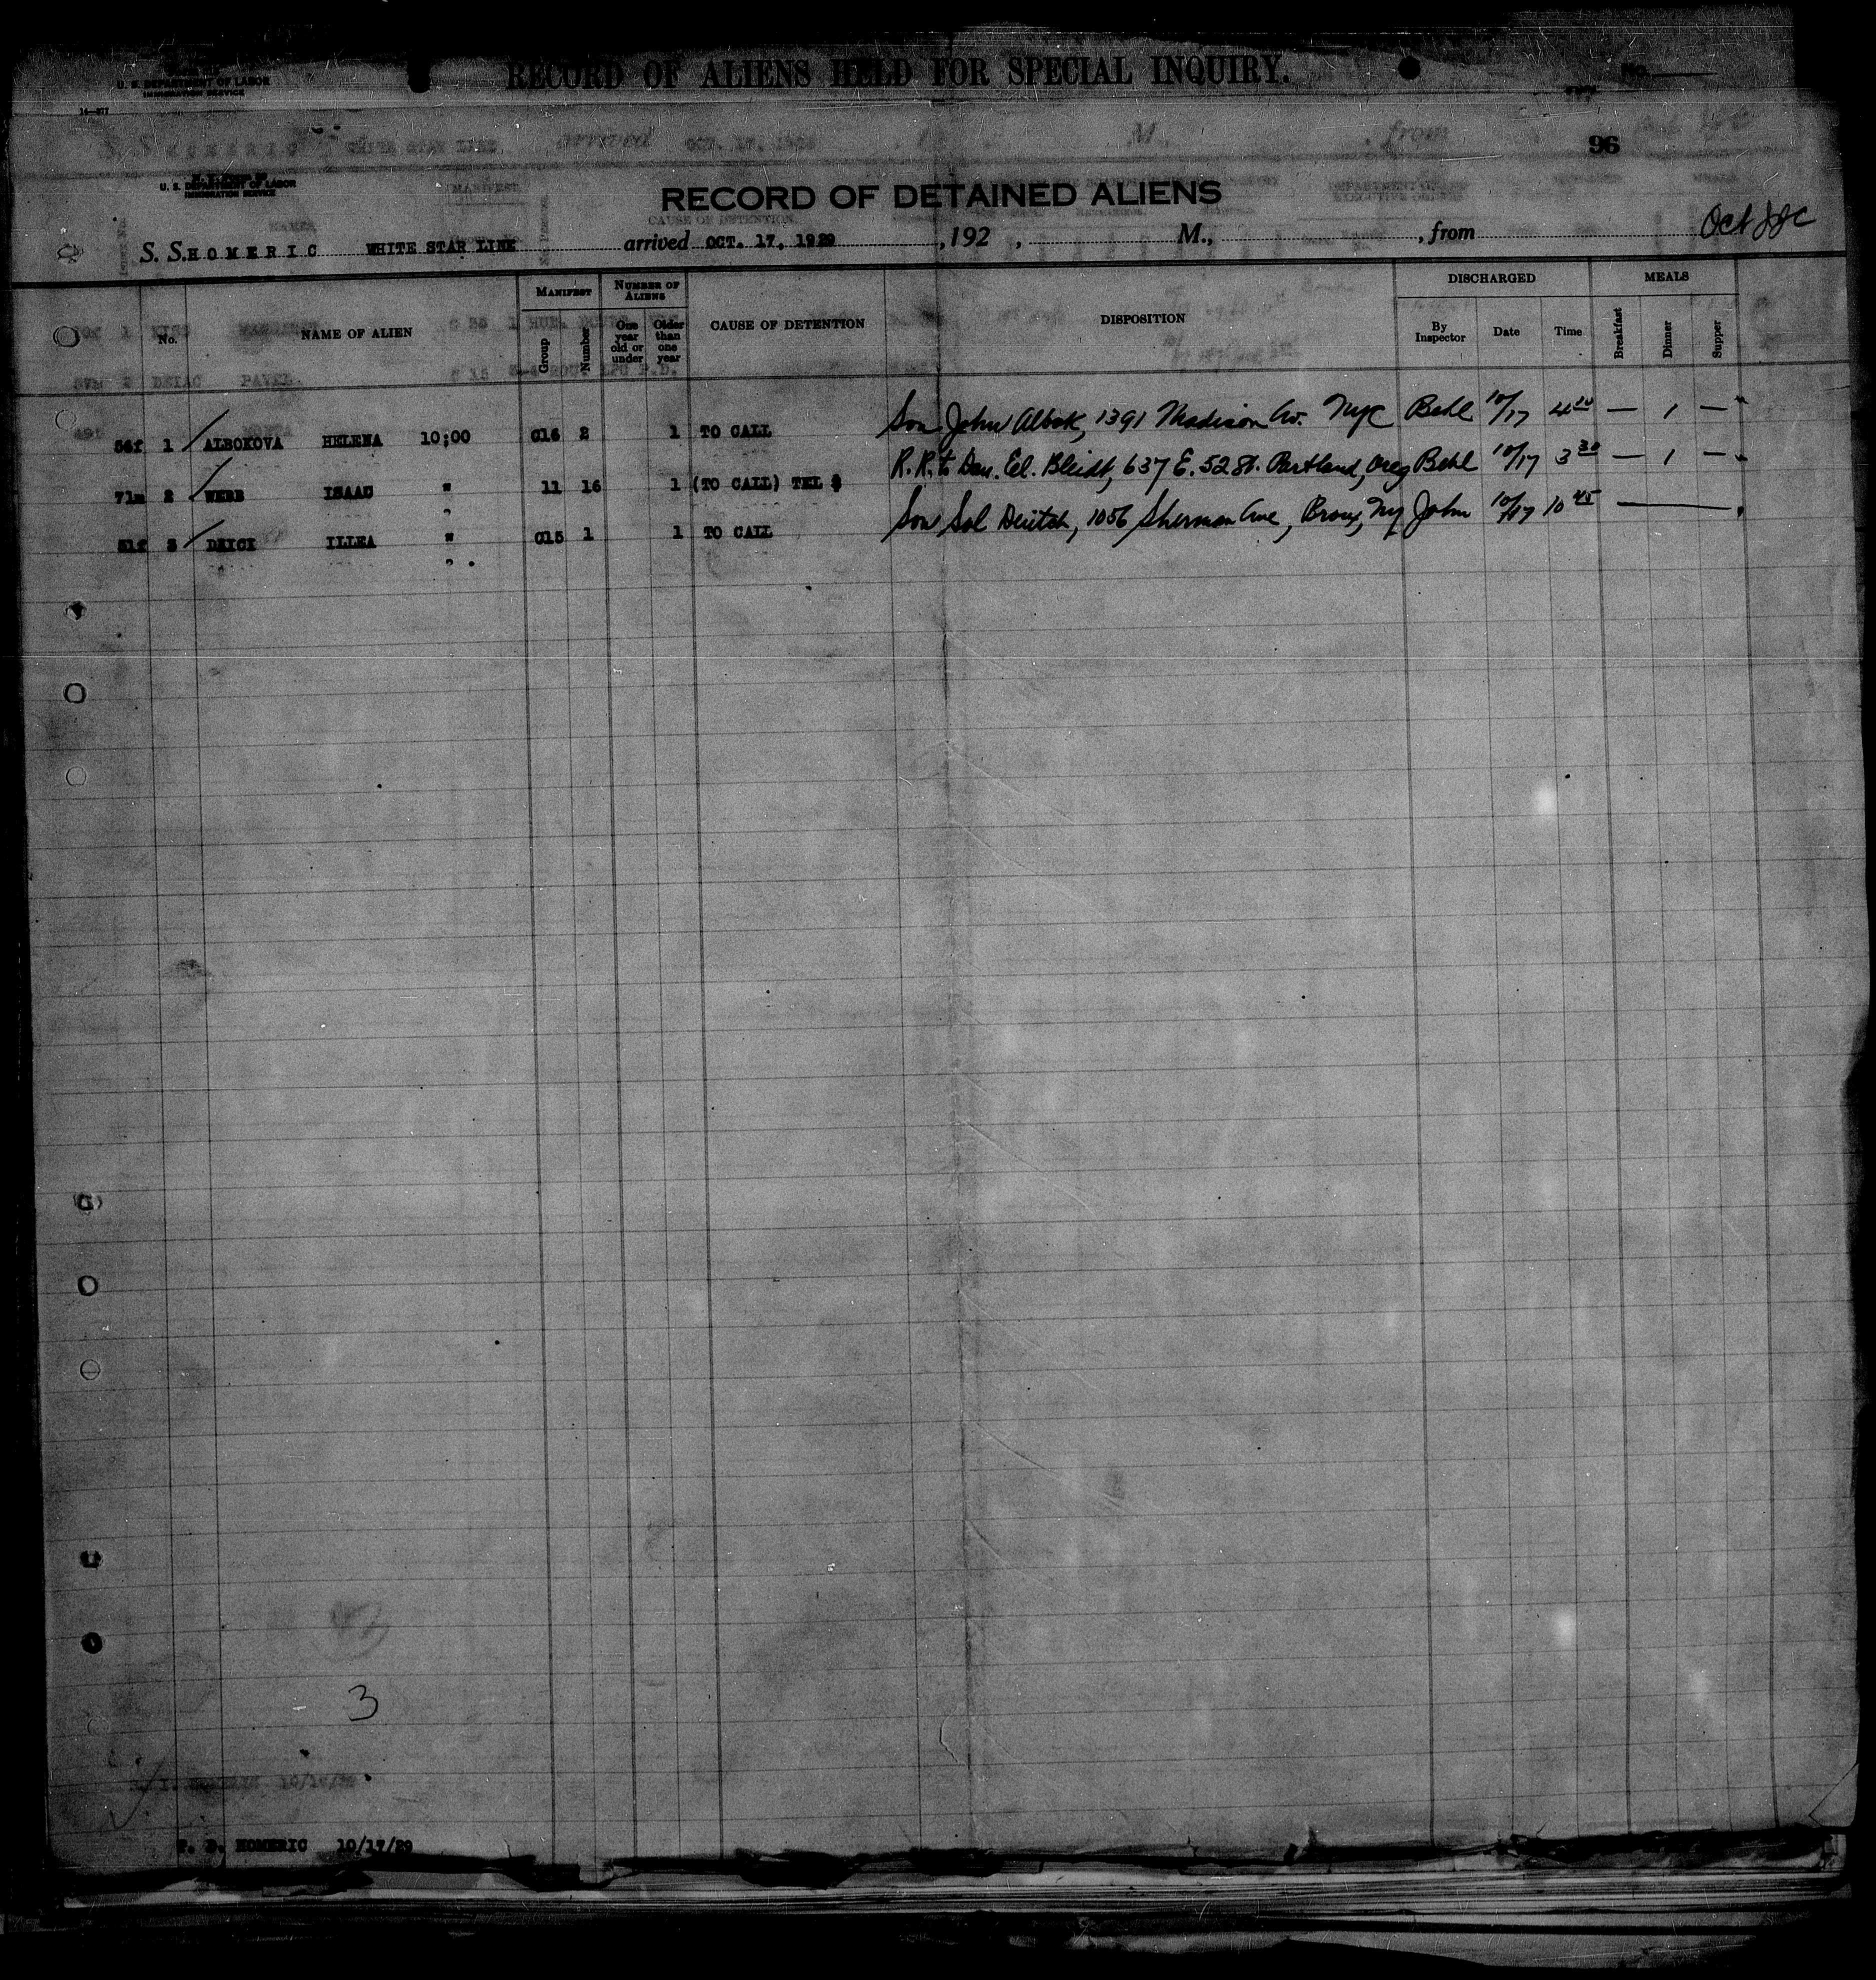 U. S. DEPARTMENT OF LABOR
IMMIGRATION SERVICE
RECORD OF ALIENS HELD FOR SPECIAL INQUIRY.
No.
96
U. S. DEPARTMENT OF LABOR
IMMIGRATION SERVICE
RECORD OF DETAINED ALIENS
S. S. HOMERIC WHITE STAR LINE arrived OCT. 17, 1929 , 192 , M., , from
No. NAME OF ALIEN MANIFEST Group Number NUMBER OF ALIENS One year old or under Older than one year CAUSE OF DETENTION DISPOSITION DISCHARGED By Inspector Date Time MEALS Breakfast Dinner Supper
56f 1 ALBOKOVA HELENA 10;00 C16 2 1 TO CALL Son John Albok, 1391 Madison Av. NYC Behl 10/17 4 — 1 —
71m 2 WEBB ISAAC " 11 16 1 (TO CALL) TEL $ R.R. to Dau. El. Bleidt, 637 E. 52 St. Portland, Oreg Behl 10/17 3 30 — 1 —
51f 3 DEICI ILLEA " C15 1 1 TO CALL Son Sol Deutch, 1056 Sherman Ave, Bronx, Ny John 10/17 10 45
3
HOMERIC 10/17/29